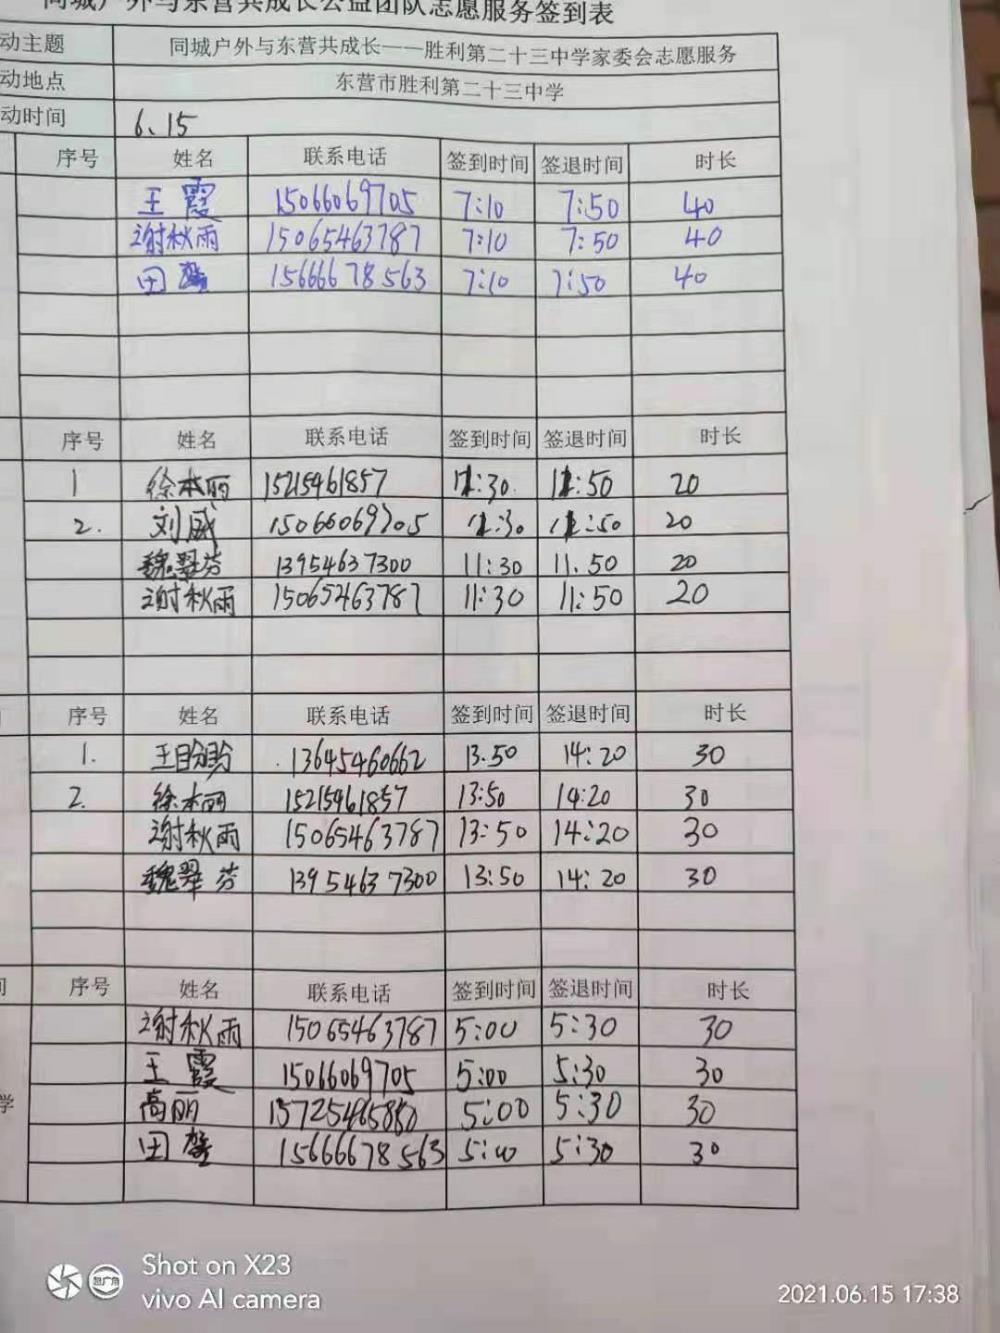 同城户外与东营共成长公益团队志愿服务签到表
动主题 同城户外与东营共成长——胜利第二十三中学家委会志愿服务
动地点 东营市胜利第二十三中学
动时间 6、15
序号 姓名 联系电话 签到时间 签退时间 时长
王霞 15066069705 7:10 7:50 40
谢秋雨 15065463787 7:10 7:50 40
田 15666678563 7:10 7:50 40
序号 姓名 联系电话 签到时间 签退时间 时长
1 徐本丽 15215461857 11:30 11:50 20
2. 刘威 15066069705 11:30 11:50 20
魏翠芬 13954637300 11:30 11.50 20
谢秋雨 15065463787 11:30 11:50 20
序号 姓名 联系电话 签到时间 签退时间 时长
1. 王 13645460662 13.50 14:20 30
2. 徐本丽 15215461857 13:50 14:20 30
谢秋雨 15065463787 13:50 14:20 30
魏翠芬 13954637300 13:50 14:20 30
序号 姓名 联系电话 签到时间 签退时间 时长
谢秋雨 15065463787 5:00 5:30 30
王霞 15066069705 5:00 5:30 30
学 高丽 5:00 5:30 30
田 15666678563 5:00 5:30 30
超广角
Shot on X23
vivo AI camera
2021.06.15 17:38